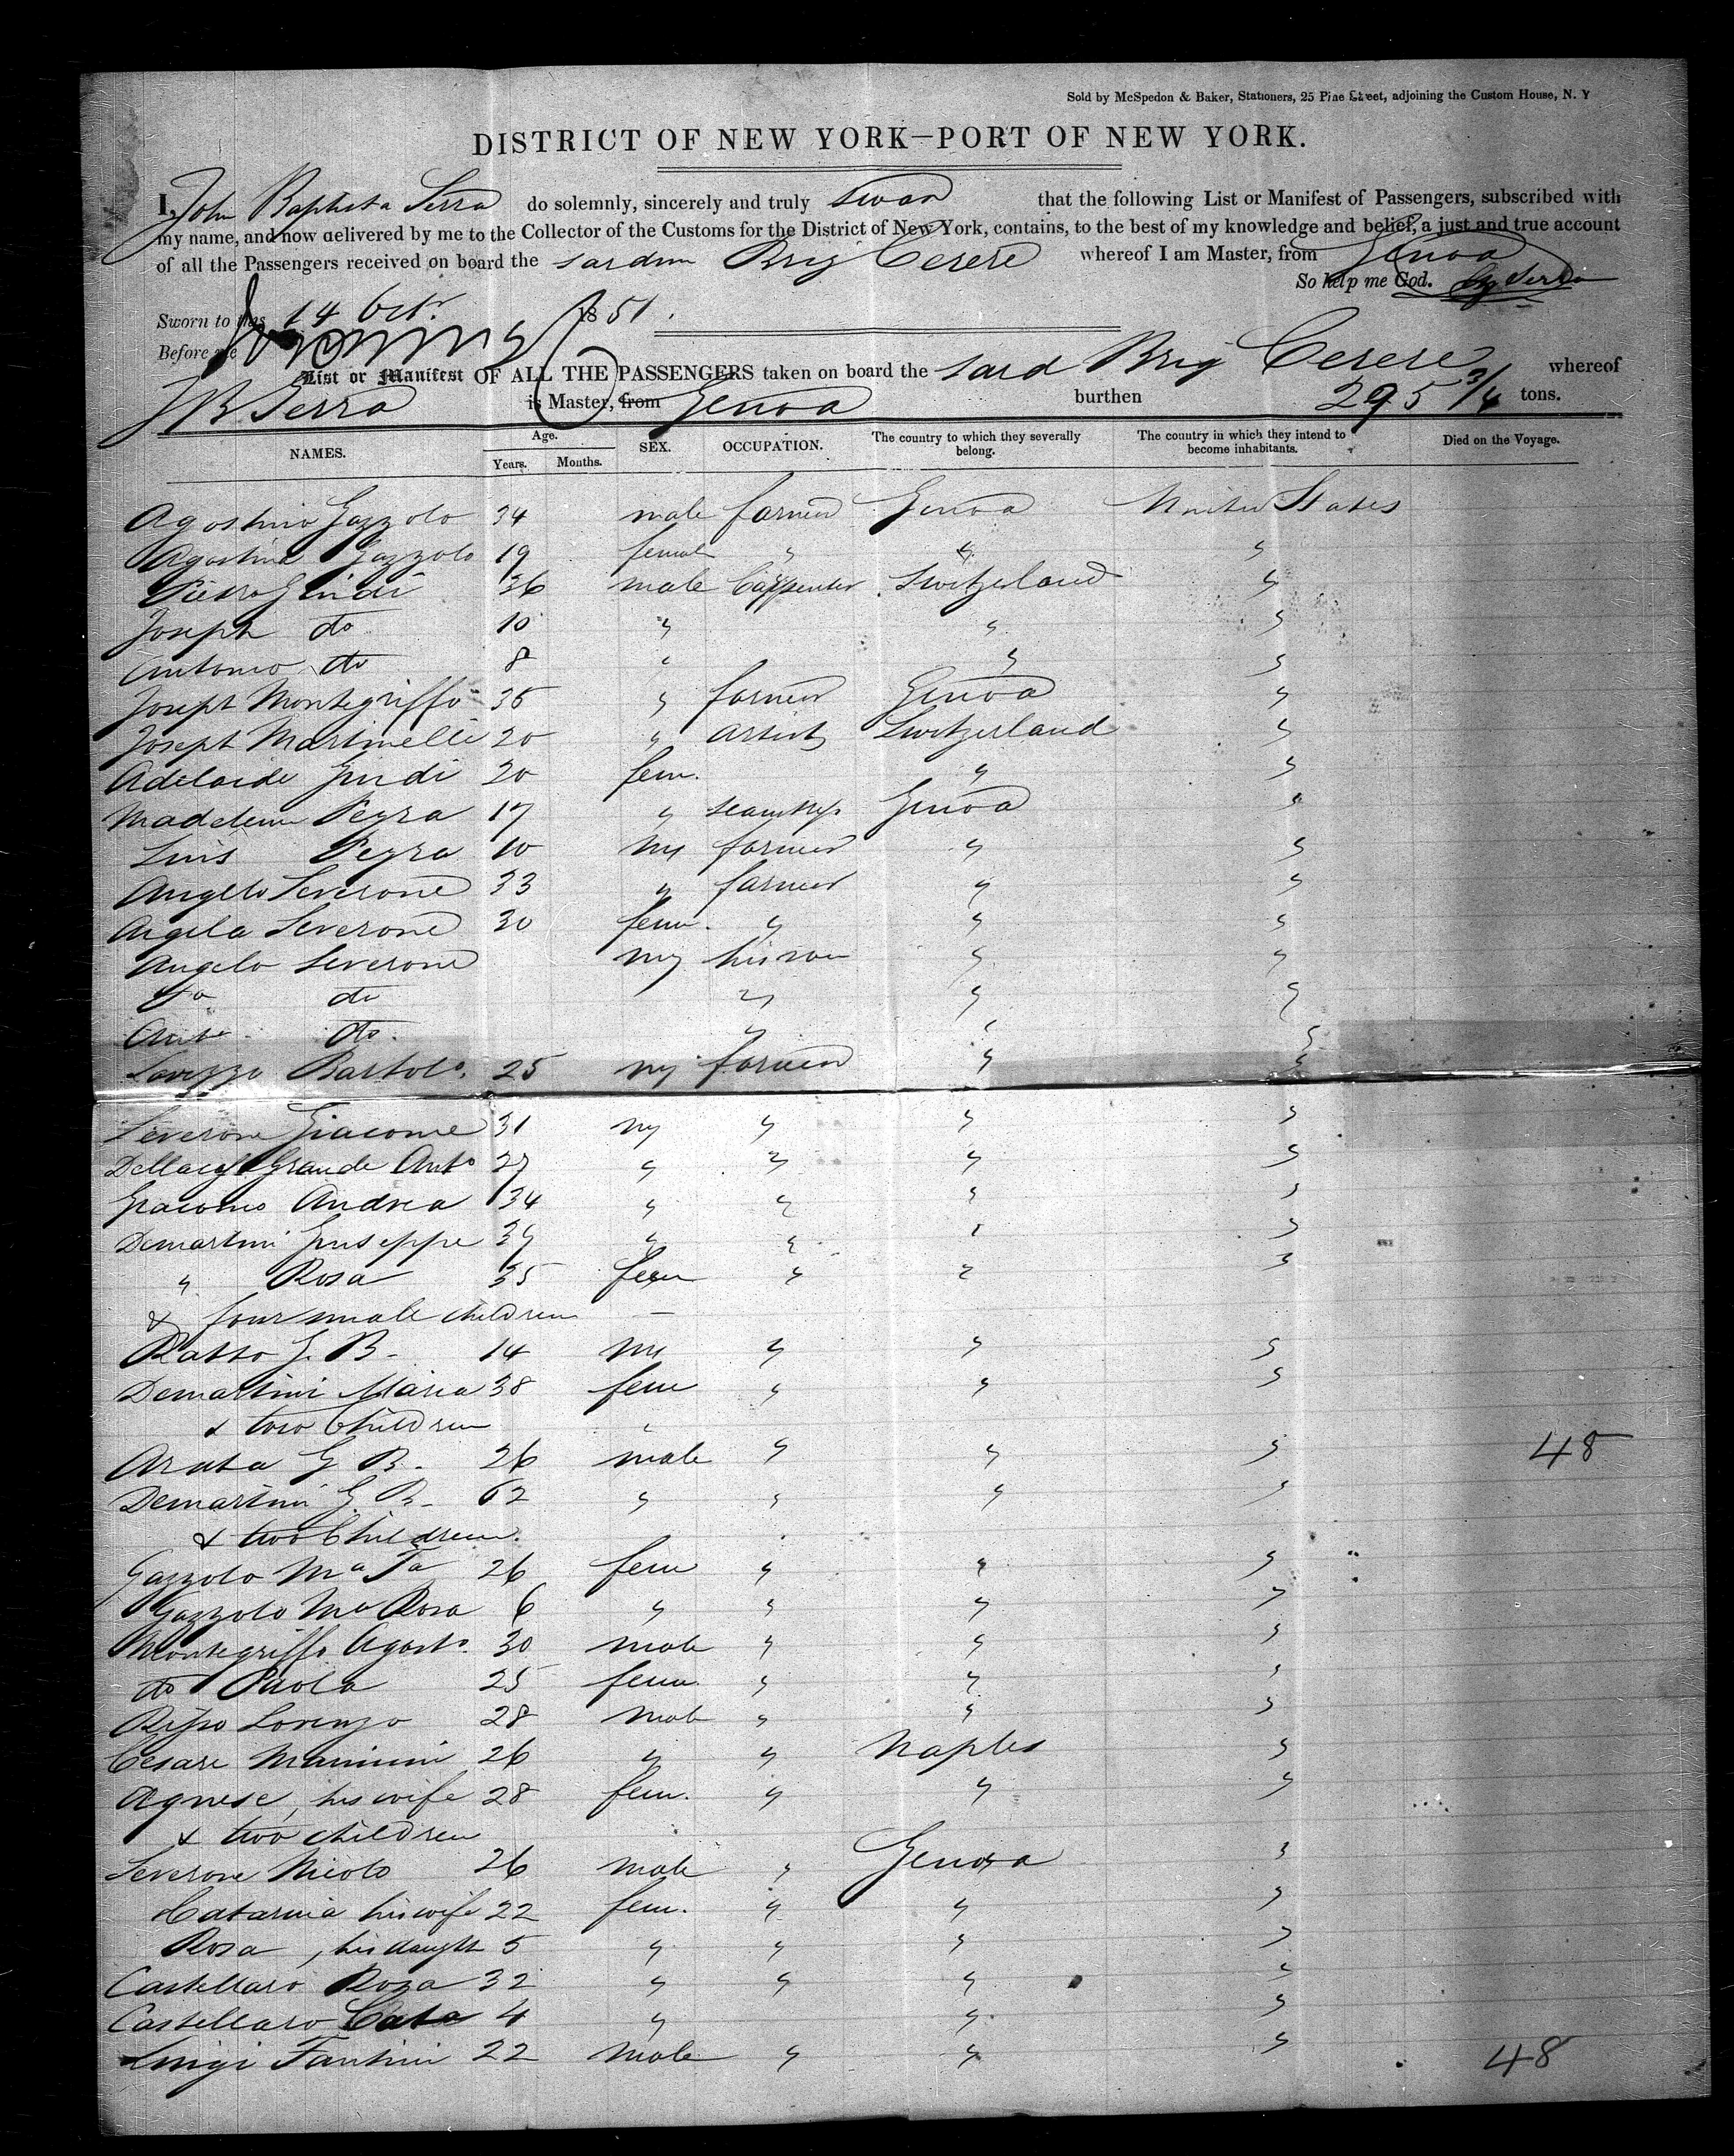 Sold by McSpedon & Baker, Stationers, 25 Pine Street, adjoining the Custom House, N. Y
DISTRICT OF NEW YORK—PORT OF NEW YORK.
I, John Baptista Serra do solemnly, sincerely and truly swear that the following List or Manifest of Passengers, subscribed with
my name, and now delivered by me to the Collector of the Customs for the District of New York, contains, to the best of my knowledge and belief, a just and true account
of all the Passengers received on board the Brig Cerere whereof I am Master, from Genoa
So help me God. Serra
Sworn to this 14 Octr. 1851.
Before me
List or Manifest OF ALL THE PASSENGERS taken on board the Sard Brig Cerere whereof
J B Serra is Master, from Genoa burthen 295 3/4 tons.
NAMES. Age. Years. Months. SEX. OCCUPATION. The country to which they severally belong. The country in which they intend to become inhabitants. Died on the Voyage.
Agostino Gazzolo 34 male farmer Genoa United States
Agostina Gazzolo 19 female " " "
Pietro 36 male Carpenter Switzerland "
Joseph do 10 " " "
Antonio do 8 " " "
Joseph Montegriffo 35 " farmer Genoa "
Joseph Martinelli 20 " artist Switzerland "
Adelaide 20 fem. " "
Pegra 17 " Genoa "
Luis Pegra 10 m farmer " "
Angelo Leverone 33 " farmer " "
Angela Leverone 30 fem. " " "
Angelo Leverone m his son " "
do do " " "
do. " " "
Bartolo. 25 m farmer " "
Leverone Giacome 31 m " " "
Grande Anto 27 " " " "
Giacomo Andrea 34 " " " "
Demartini Giuseppe 39 " " " "
" Rosa 35 fem " " "
& four male children —
Ratto G. B. 14 m " " "
Demartini Maria 38 fem " " "
& two Children "
Arata G B. 26 male " " " 48
Demartini G. B. 62 " " " "
& two Children.
Gazzolo Ma Ta 26 fem " " "
Gazzolo Ma Rosa 6 " " " "
Montegriffo Agosto. 30 male " " "
do Paola 25 fem. " " "
Lorenzo 28 male " " "
Cesare 26 " " Naples "
Agnese, his wife 28 fem. " " "
& two children
Leverone Nicolo 26 male " Genoa "
Catarina his wife 22 fem. " " "
Rosa, his daught 5 " " " "
Castellaro Rosa 32 " " " "
Castellaro Cata 4 " " "
Luigi Fantini 22 male " " " 48